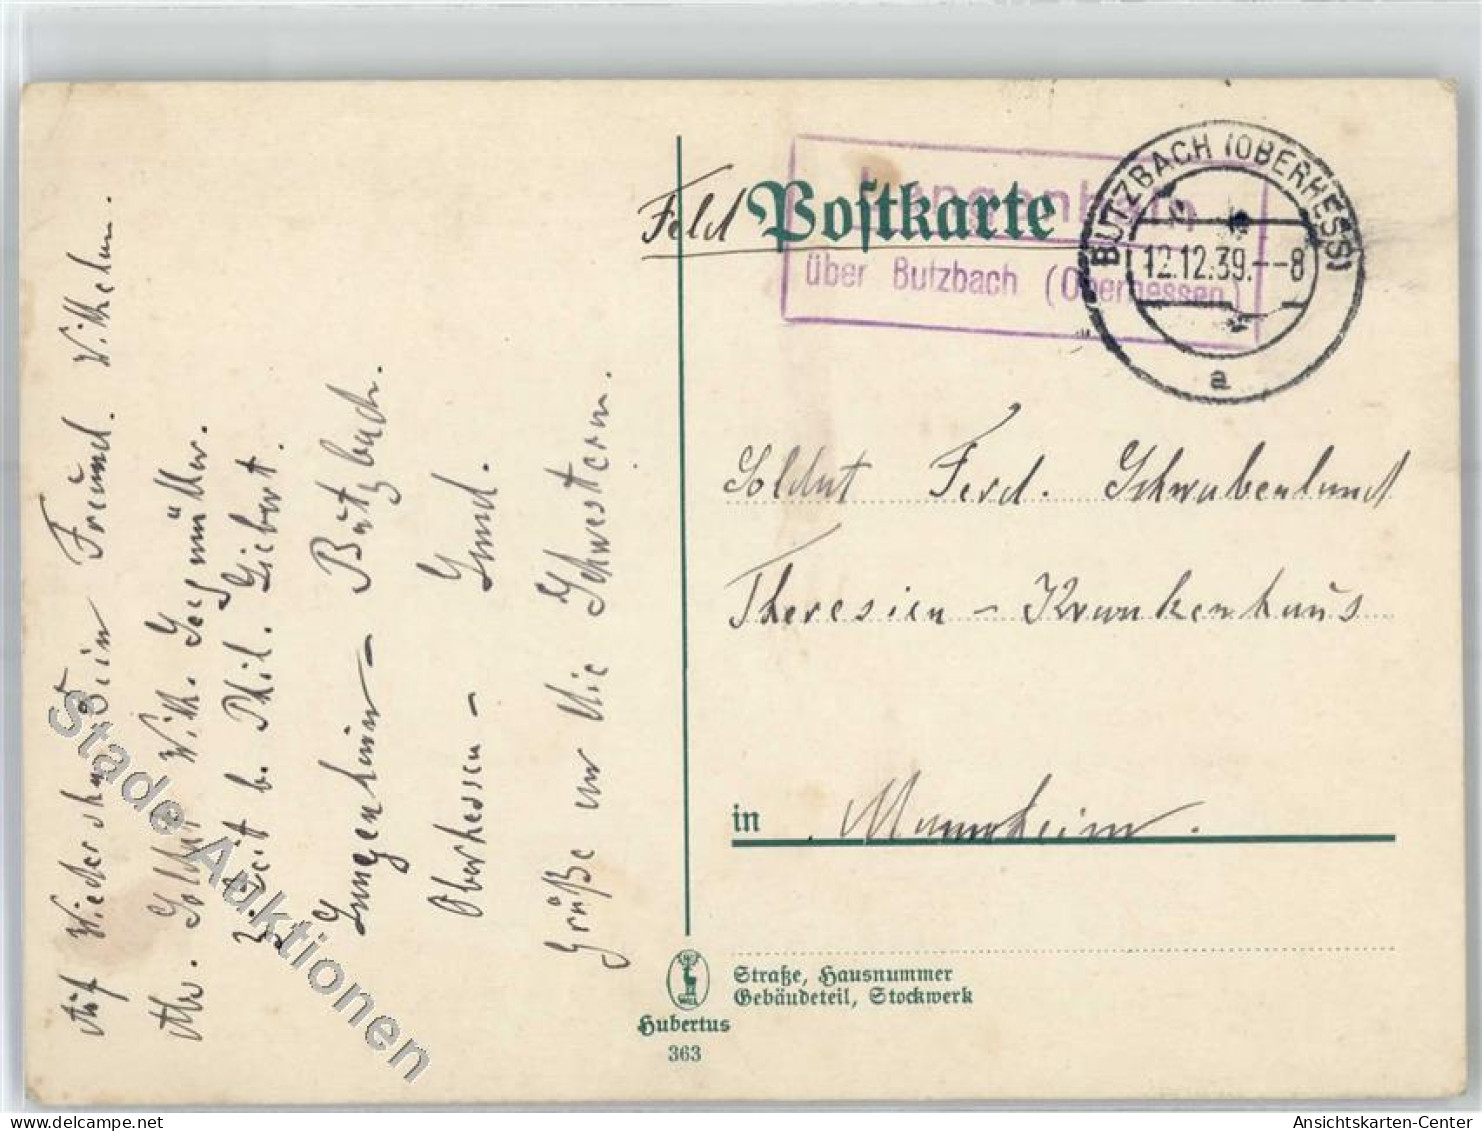 Auf Wiedersehn Dein Freund. Wilhelm.
Soldat Wilh.
b. Phil. Siebert.
Langenhain - Butzbach.
Oberhessen - Land.
Grüße an die Schwestern.
Feld Postkarte
Langenhain
über Butzbach (Oberhessen)
BUTZBACH (OBERHESS)
12.12.39.--8
a
Soldat Ferd. Schwabenland
Theresien - Krankenhaus
in Mannheim.
Straße, Hausnummer
Gebäudeteil, Stockwerk
Hubertus
363
Stade Auktionen
Ansichtskarten-Center